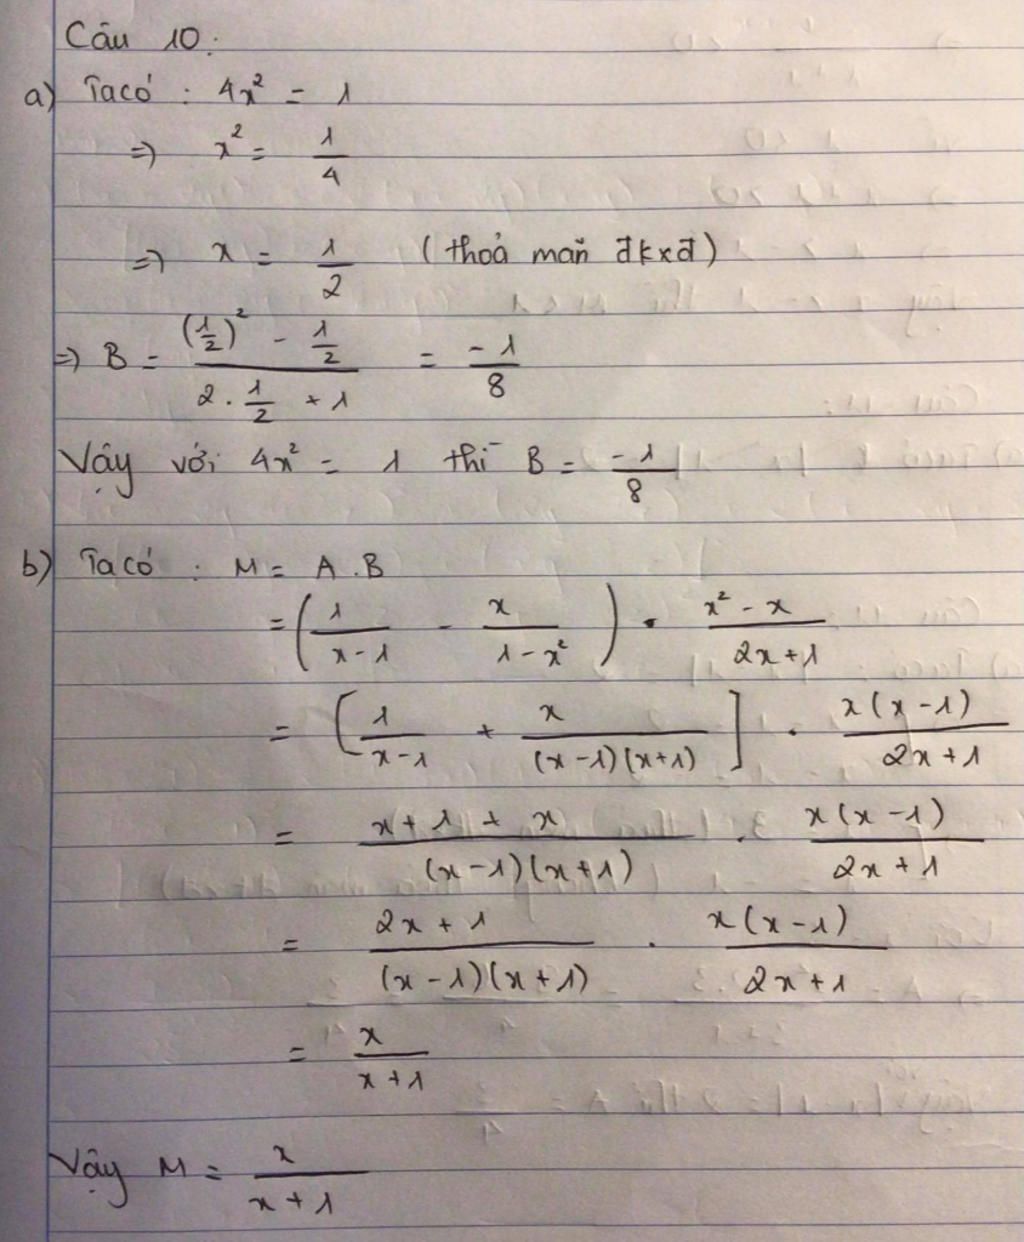 Câu 10:
a) Ta có : 4x² = 1
=> x² = 1/4
=> x = 1/2 (thoả mãn đkxđ)
=> B = ((1/2)² - 1/2)/(2 . 1/2 + 1) = -1/8
Vậy với 4x² = 1 thì B = -1/8
b) Ta có : M = A . B
= (1/(x-1) - x/(1-x²)) . (x² - x)/(2x+1)
= [1/(x-1) + x/((x-1)(x+1))] . x(x-1)/(2x+1)
= (x+1+x)/((x-1)(x+1)) . x(x-1)/(2x+1)
= (2x+1)/((x-1)(x+1)) . x(x-1)/(2x+1)
= x/(x+1)
Vậy M = x/(x+1)